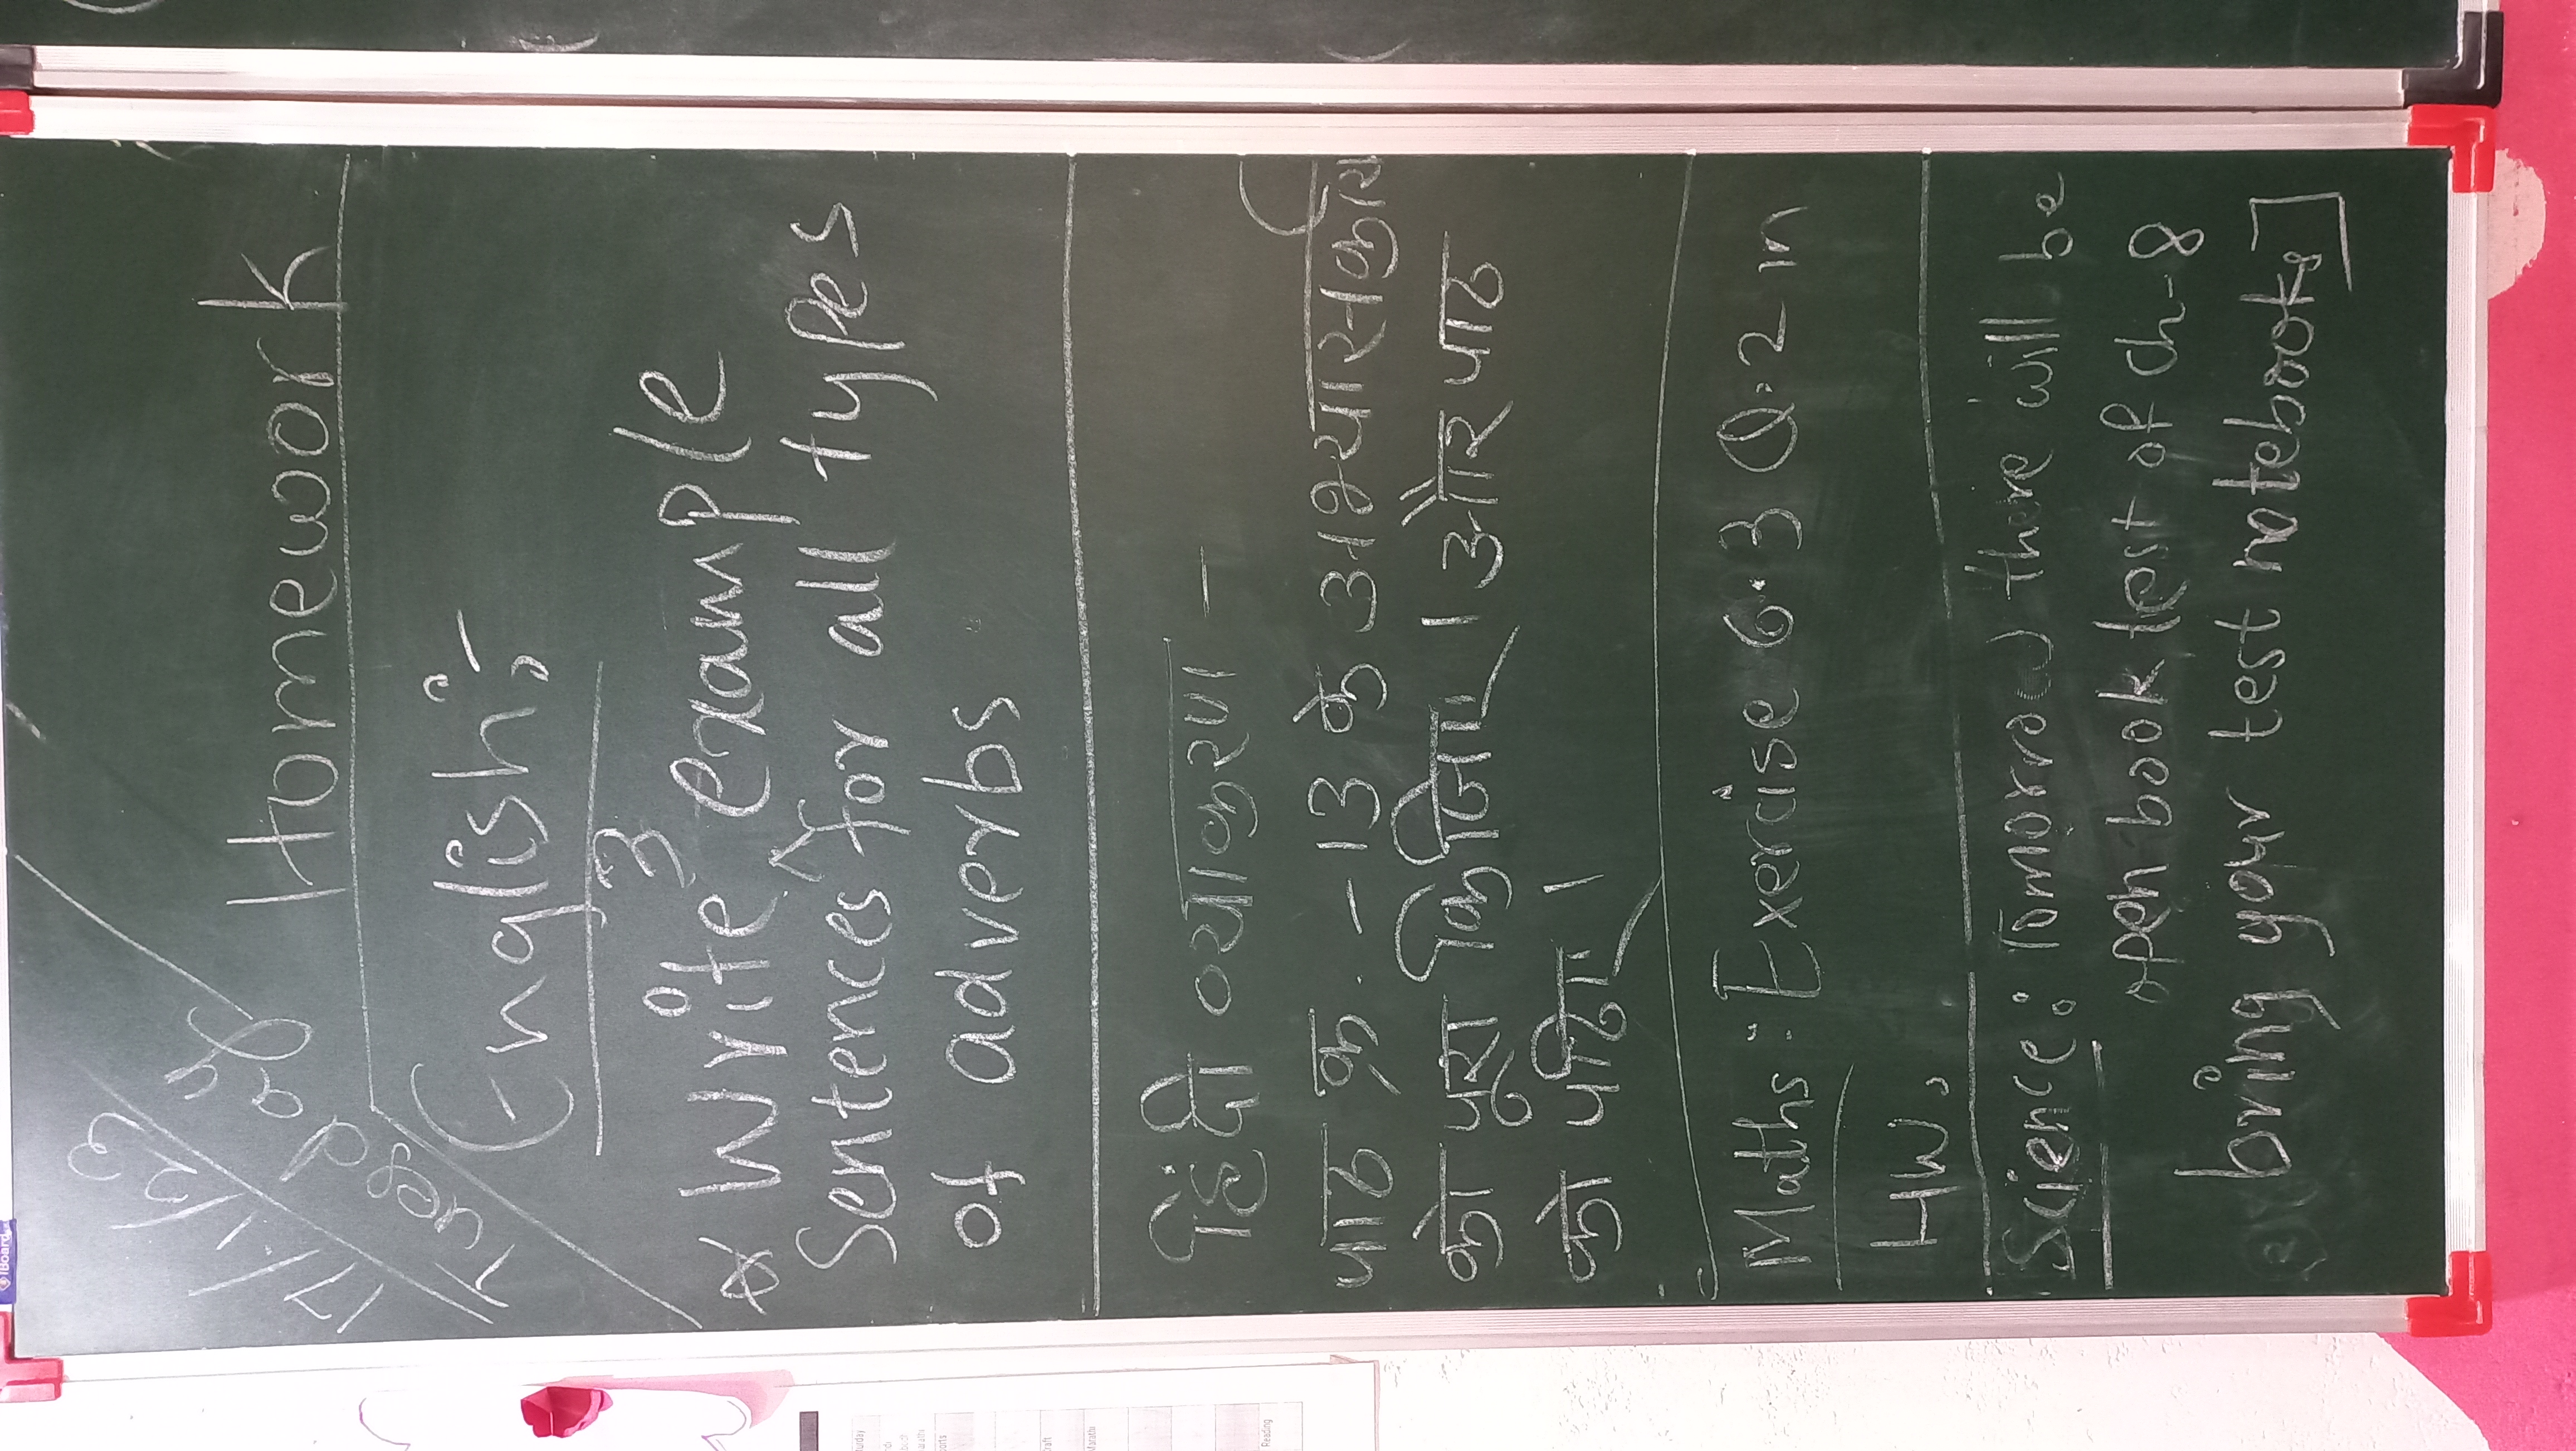 17/1/23
Tuesday
Homework
English:-
* Write 3 example
Sentences for all types
of adverbs
हिंदी व्याकरण -
पाठ क्र. - 13 के अभ्यासकार्य
को पूरा किजिए । और पाठ
को पढ़िए ।
Maths : Exercise 6.3 Q.2 in
HW.
Science : Tomorrow there will be
open book test of ch-8
bring your test notebook]
iBoard
Reading